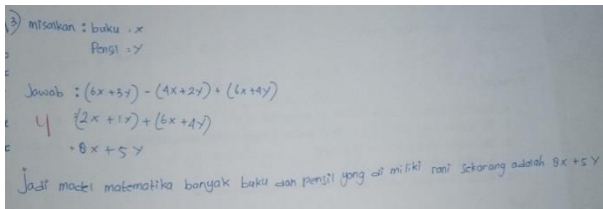 3) misalkan : buku = x
Pensil = y
Jawab : (6x + 3y) - (4x + 2y) + (6x + 4y)
4 = (2x + 1y) + (6x + 4y)
= 8x + 5y
Jadi model matematika banyak buku dan pensil yang di miliki rani sekarang adalah 8x + 5y